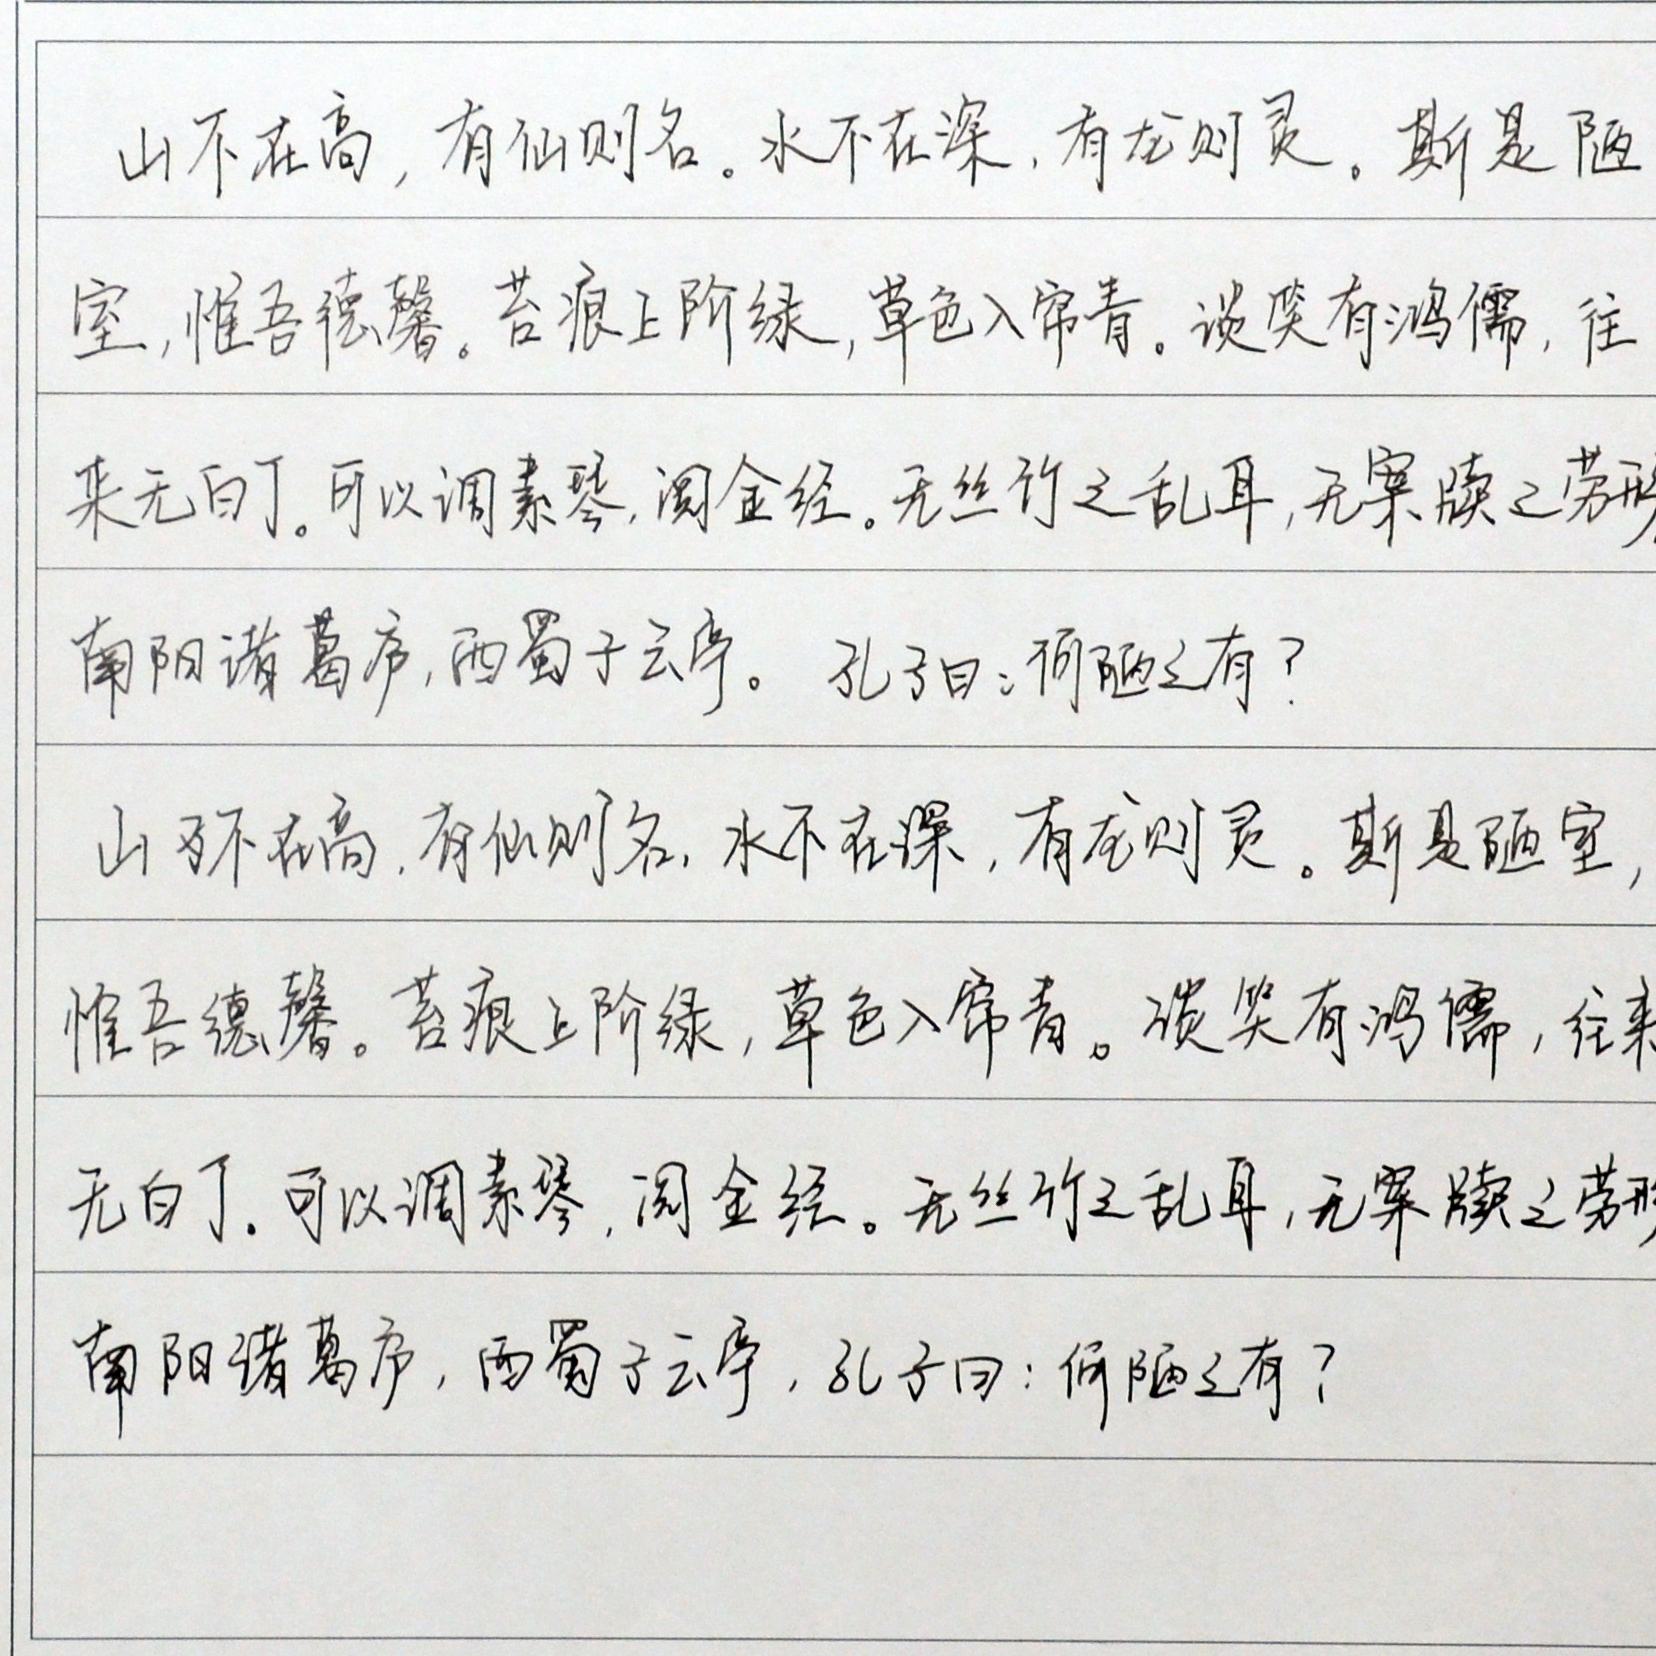 山不在高，有仙则名。水不在深，有龙则灵。斯是陋
室，惟吾德馨。苔痕上阶绿，草色入帘青。谈笑有鸿儒，往
来无白丁。可以调素琴，阅金经。无丝竹之乱耳，无案牍之劳形
南阳诸葛庐，西蜀子云亭。孔子曰：何陋之有？
山不在高，有仙则名，水不在深，有龙则灵。斯是陋室，
惟吾德馨。苔痕上阶绿，草色入帘青。谈笑有鸿儒，往来
无白丁。可以调素琴，阅金经。无丝竹之乱耳，无案牍之劳形
南阳诸葛庐，西蜀子云亭，孔子曰：何陋之有？